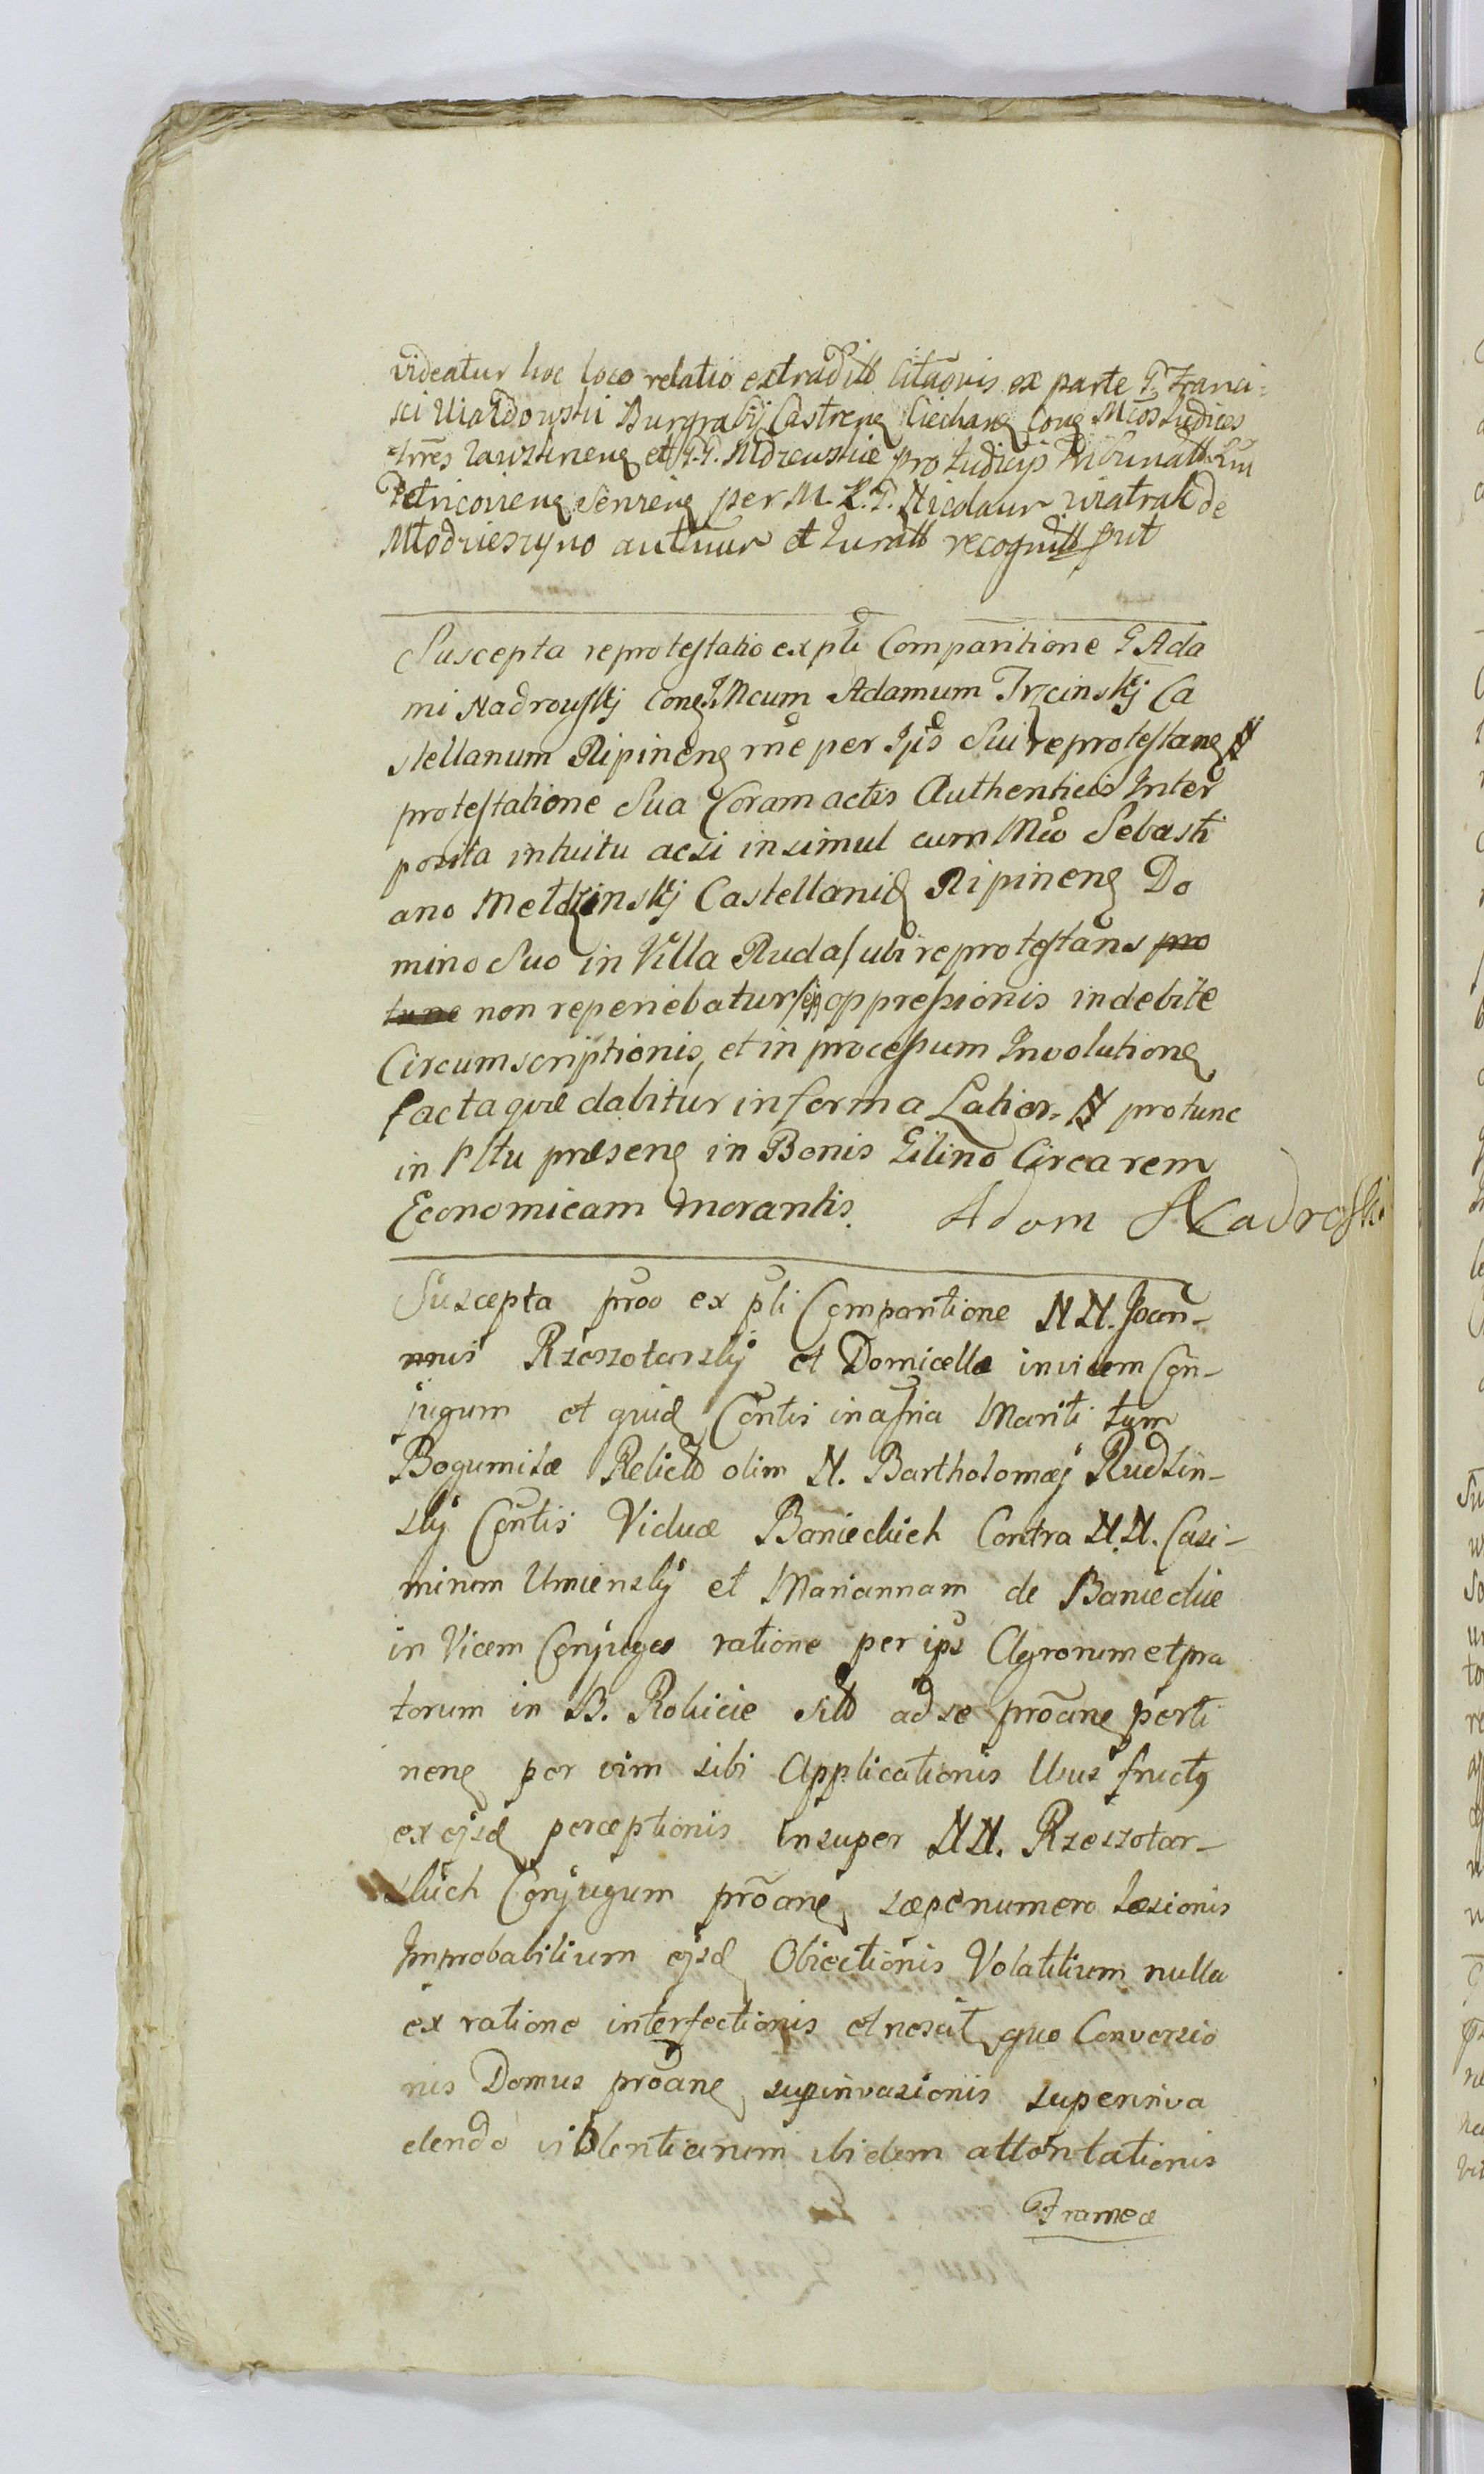 videatur hoc loco relatio extraditt Citaōnis ex parte G. Franci-
sci Burgrabij Castreng Ciechang Cong Mcos Judices
trēs et G.G. pro Judicijs Tribunall
Petricovieng per M. Nicolaum Wiatrak de
Młodzieszyno et Juratt recognitt
Suscepta reprotestatio ex pti Comparitione G Ada
mi Nadrowskj Cong Mcum Adamum Trzcinskj Ca
stellanum Ripineng rne per Ips Sui reprotestang N
protestatione Sua Coram actis Authenticis Inter
posita intuitu acsi insimul cum Mco Sebasti
ano Mełdzinskj Castellanid Ripineng Do
mino Suo in Villa Ruda /ubi reprotestans pro
tunc non reperiebatur/ oppressionis indebite
Circumscriptionis, et in processum Involutiong
facta quæ dabitur in forma Latior. N protunc
in Pttu præseng in Bonis Gilino Circa rem
Economicam morantis. Adam Nadroski
Suscepta proō ex pti Comparitione N N. Joan-
nnis Rzeszotarskj et Domicellæ invicem Con-
jugum et quid Contis in assia Mariti tum
Bogumilæ Relictæ olim N. Bartholomæj Rudzin-
skj Contis Viduæ Banieckich Contra N.N. Casi-
mirum Umienskj et Mariannam de Banieckie
in Vicem Conjuges ratione per ips Agrorum et pra
torum in B. Rokicie sitt ad se proāne perti
neng per vim sibi Applicationis Usus fructq
ex ejsd perceptionis insuper N N. Rzeszotar-
skich Conjugum proāng sæpenumero Læsionis
Improbabilium ejsd Obiectionis Volatilium nulla
ex ratione interfectionis et nescit quo Conversio
nis Domus proāng supinvasionis superinva
dendo violentiarum ibidem attentationis
Frameæ